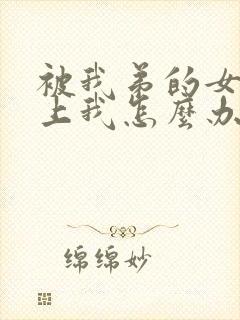 被我弟的女
上我怎麼办
绵绵妙